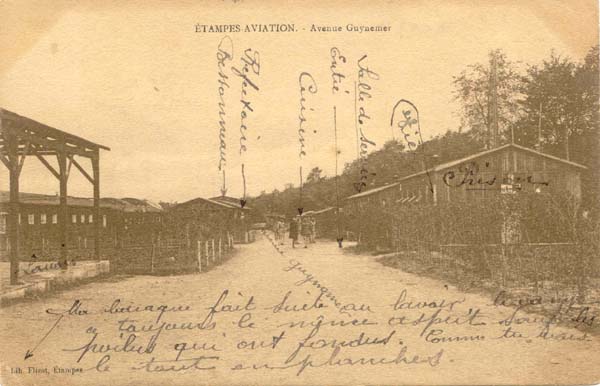 ÉTAMPES-AVIATION. - Avenue Guynemer
Réfectoire
Bessonneau
Cuisine
Entré
Salle de service
Lavoir
guynemer
Ma baraque fait suite au lavoir
a toujours le même aspect sauf les
poilus qui ont fondus. Comme tu vois
le tout en planches.
Lib. Flizot, Étampes